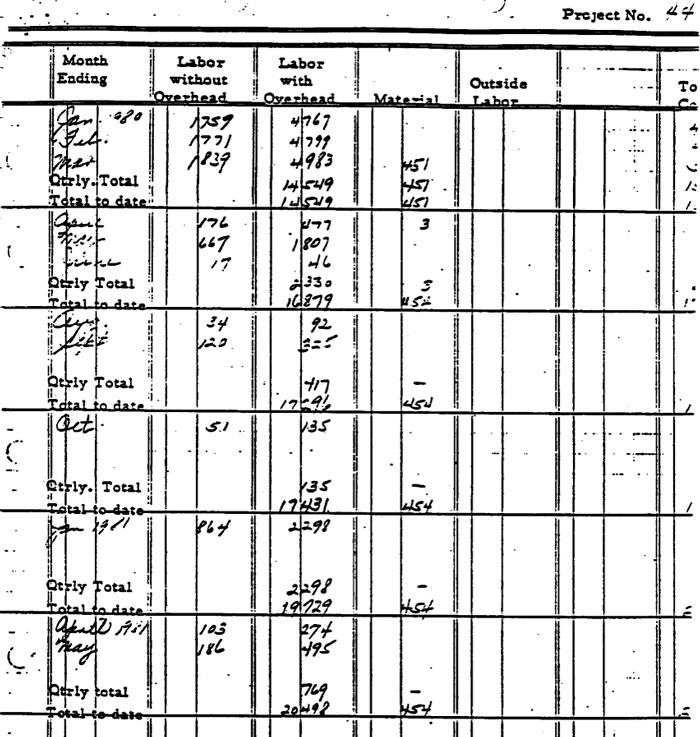 Project No. 44
Month Ending Labor without Overhead Labor with Overhead Material Outside Labor
Jan. 980 1759 4767
Feb. 1771 4799
Mar 1839 4983 451
Qtrly. Total 14549 451
Total to date 14549 451
April 176 477 3
667 1807
June 17 46
Qtrly Total 2330 3
Total to date 16879
Aug. 34 92
Sept 120 325
Qtrly Total 417 -
Total to date 454
Oct 51 135
Qtrly. Total 135 -
Total to date 17431 454
Jan 1981 864 2298
Qtrly Total 2298 -
Total to date 19729 454
April 1981 103 274
May 186 495
Qtrly total 769 -
Total to date 20498 454